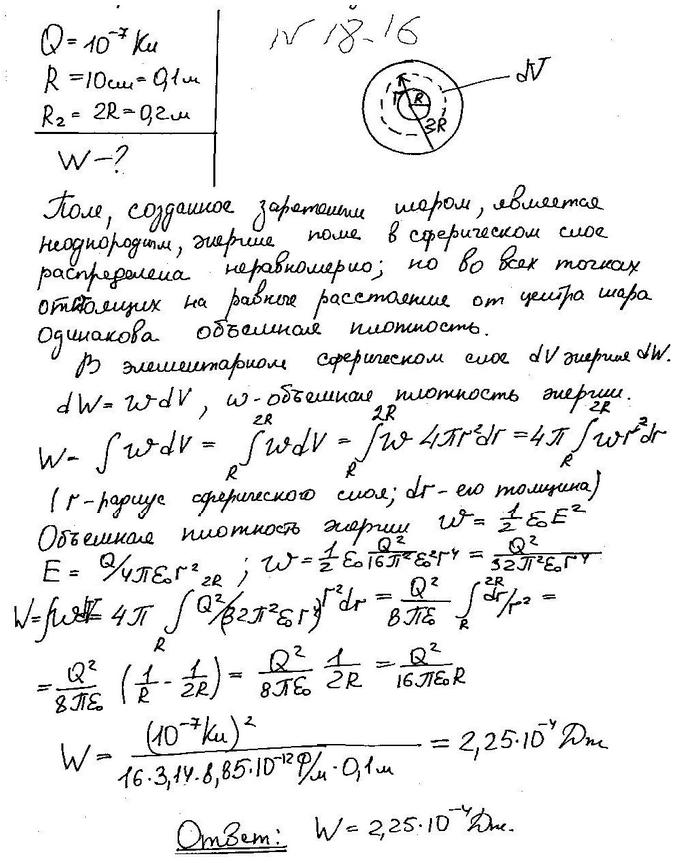 N 18-16
Q = 10⁻⁷ Кл
R = 10см = 0,1м
R₂ = 2R = 0,2м
W - ?
r R 3R dV
Поле, созданное заряженным шаром, является
неоднородным, энергия поля в сферическом слое
распределена неравномерно; но во всех точках
отстоящих на равные расстояние от центра шара
одинакова объемная плотность.
В элементарном сферическом слое dV энергия dW.
dW = w dV, w - объемная плотность энергии.
W = ∫ w dV = ∫_R^{2R} w dV = ∫_R^{2R} w 4πr²dr = 4π ∫_R^{2R} w r² dr
(r - радиус сферического слоя; dr - его толщина)
Объемная плотность энергии w = 1/2 ε₀E²
E = Q/4πε₀r² ; w = 1/2 ε₀ Q²/16π²ε₀²r⁴ = Q²/32π²ε₀r⁴
W = ∫wdV = 4π ∫_R^{2R} Q²/(32π²ε₀r⁴) r²dr = Q²/8πε₀ ∫_R^{2R} dr/r² =
= Q²/8πε₀ (1/R - 1/2R) = Q²/8πε₀ 1/2R = Q²/16πε₀R
W = (10⁻⁷Кл)²/16·3,14·8,85·10⁻¹²Ф/м·0,1м = 2,25·10⁻⁴ Дж
Ответ: W = 2,25·10⁻⁴ Дж.